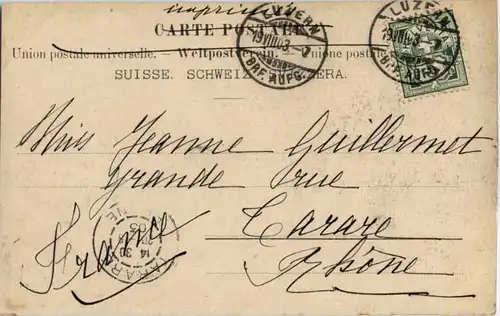 imprimé
CARTE POSTALE.
Union postale universelle. — Weltpostverein. — Unione postale
SUISSE. SCHWEIZ. SVIZZERA.
LUZERN
19.VIII.03.
BRF. AUFG.
LUZERN
19.VIII.03.
BRF. AUFG.
Miss Jeanne Guillermet
Grande rue
Tarare
Rhône
France
TARARE